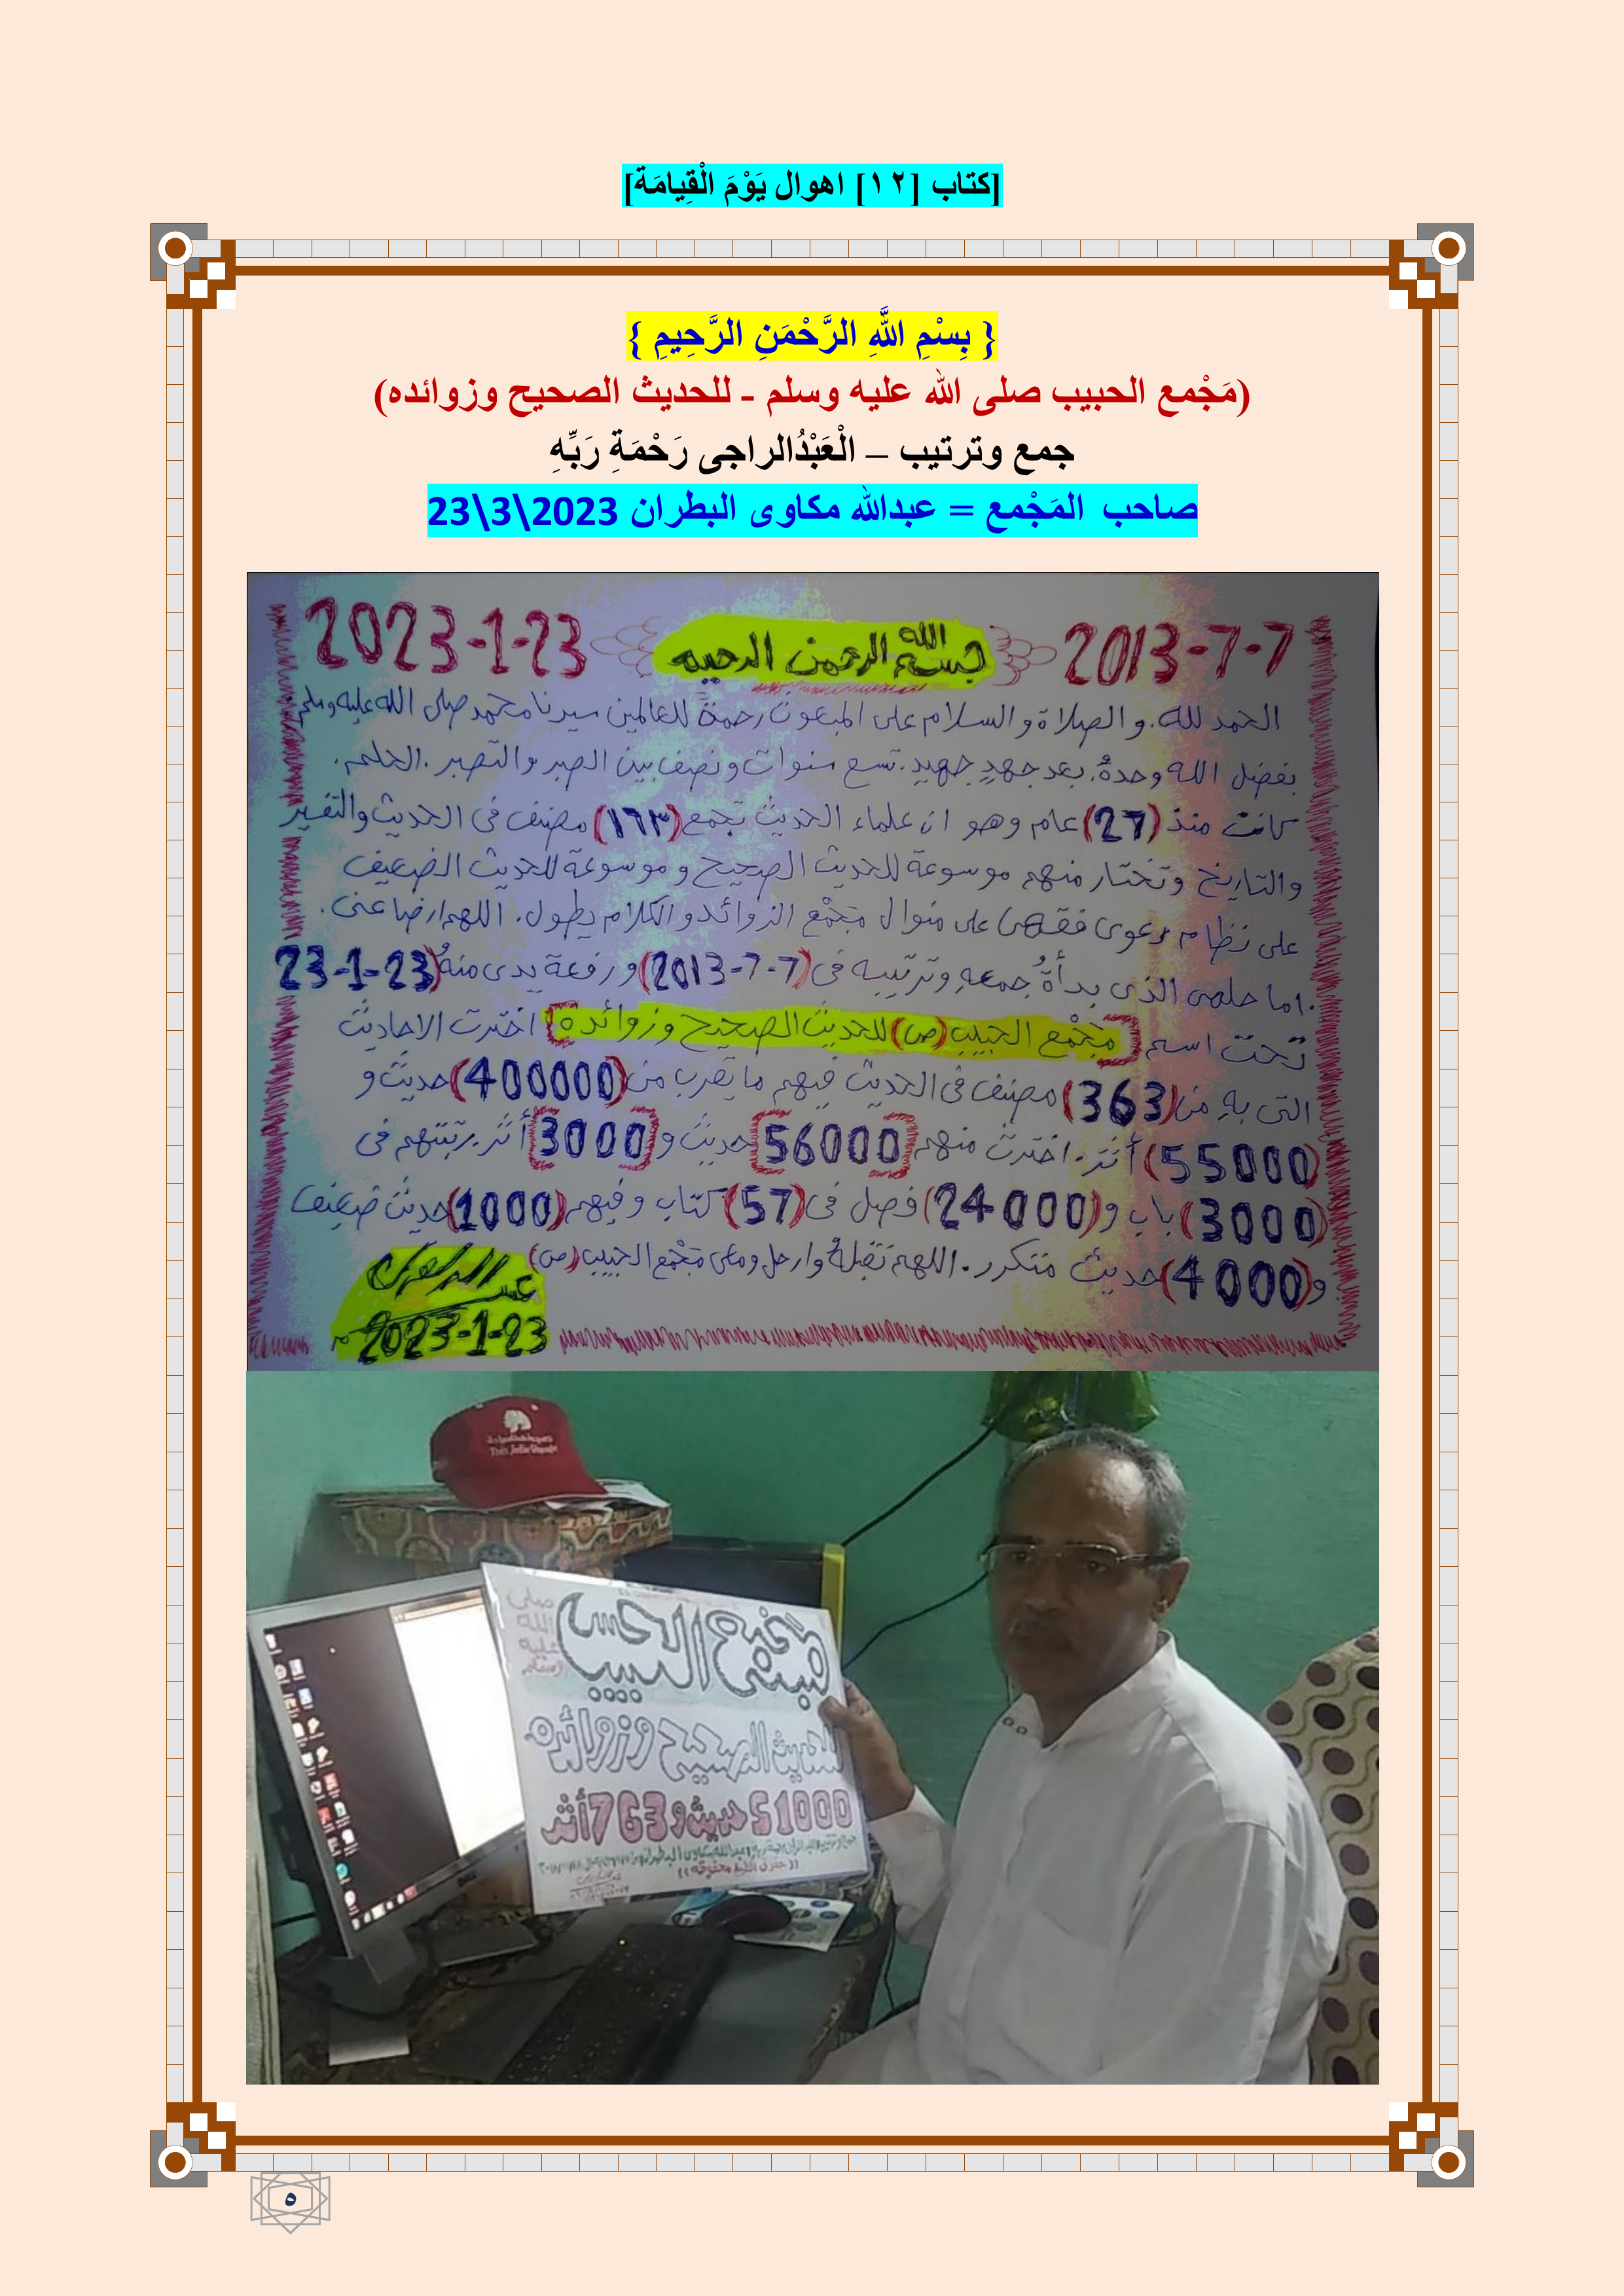 [كتاب [١٢] اهوال يَوْمَ الْقِيامَة]
{ بِسْمِ اللَّهِ الرَّحْمَنِ الرَّحِيمِ }
(مَجْمع الحبيب صلى الله عليه وسلم - للحديث الصحيح وزوائده)
جمع وترتيب – الْعَبْدُالراجى رَحْمَةِ رَبِّهِ
صاحب المَجْمع = عبدالله مكاوى البطران 2023\3\23
2013-7-7 بسم الله الرحمن الرحيم 2023-1-23
الحمد لله. والصلاة والسلام على المبعوث رحمةً للعالمين سيدنا محمد صلى الله عليه وسلم
بفضل الله وحدهُ. بعد جهدٍ جهيدٍ. تسع سنوات ونصف بين الصبر والتصبر. الحلم.
كانت منذ (27) عام وهو ان علماء الحديث تجمع (١٦٣) مصنف فى الحديث والتفسير
والتاريخ وتختار منهم موسوعة للحديث الصحيح وموسوعة للحديث الضعيف
على نظام دعوى فقهى على منوال مَجْمع الزوائد والكلام يطول. اللهم ارضا عنى.
.اما حلمى الذى بدأةُ جمعهِ وترتيبه فى (7-7-2013) ورفعة يدى منهُ (23-1-23)
تحت اسم [مَجْمع الحبيب (ص) للحديث الصحيح وزوائدة] اخترت الاحاديث
التى بهِ من (363) مصنف فى الحديث فيهم ما يقرب من (400000) حديث و
(55000) أثر. اخترت منهم [56000] حديث و [3000] أثر. رتبتهم فى
(3000) باب و (24000) فصل فى (57) كتاب وفيهم (1000) حديث ضعيف
و (4000) حديث متكرر. اللهم تقبلهُ وارحل ومعى مَجْمع الحبيب (ص)
2023-1-23
صلى
الله
عليه
وسلم
مجمع الحبيب
للحديث الصحيح وزوائده
51000 حديث و 763 أثر
((حقوق الطبع محفوظة))
DELL
٥